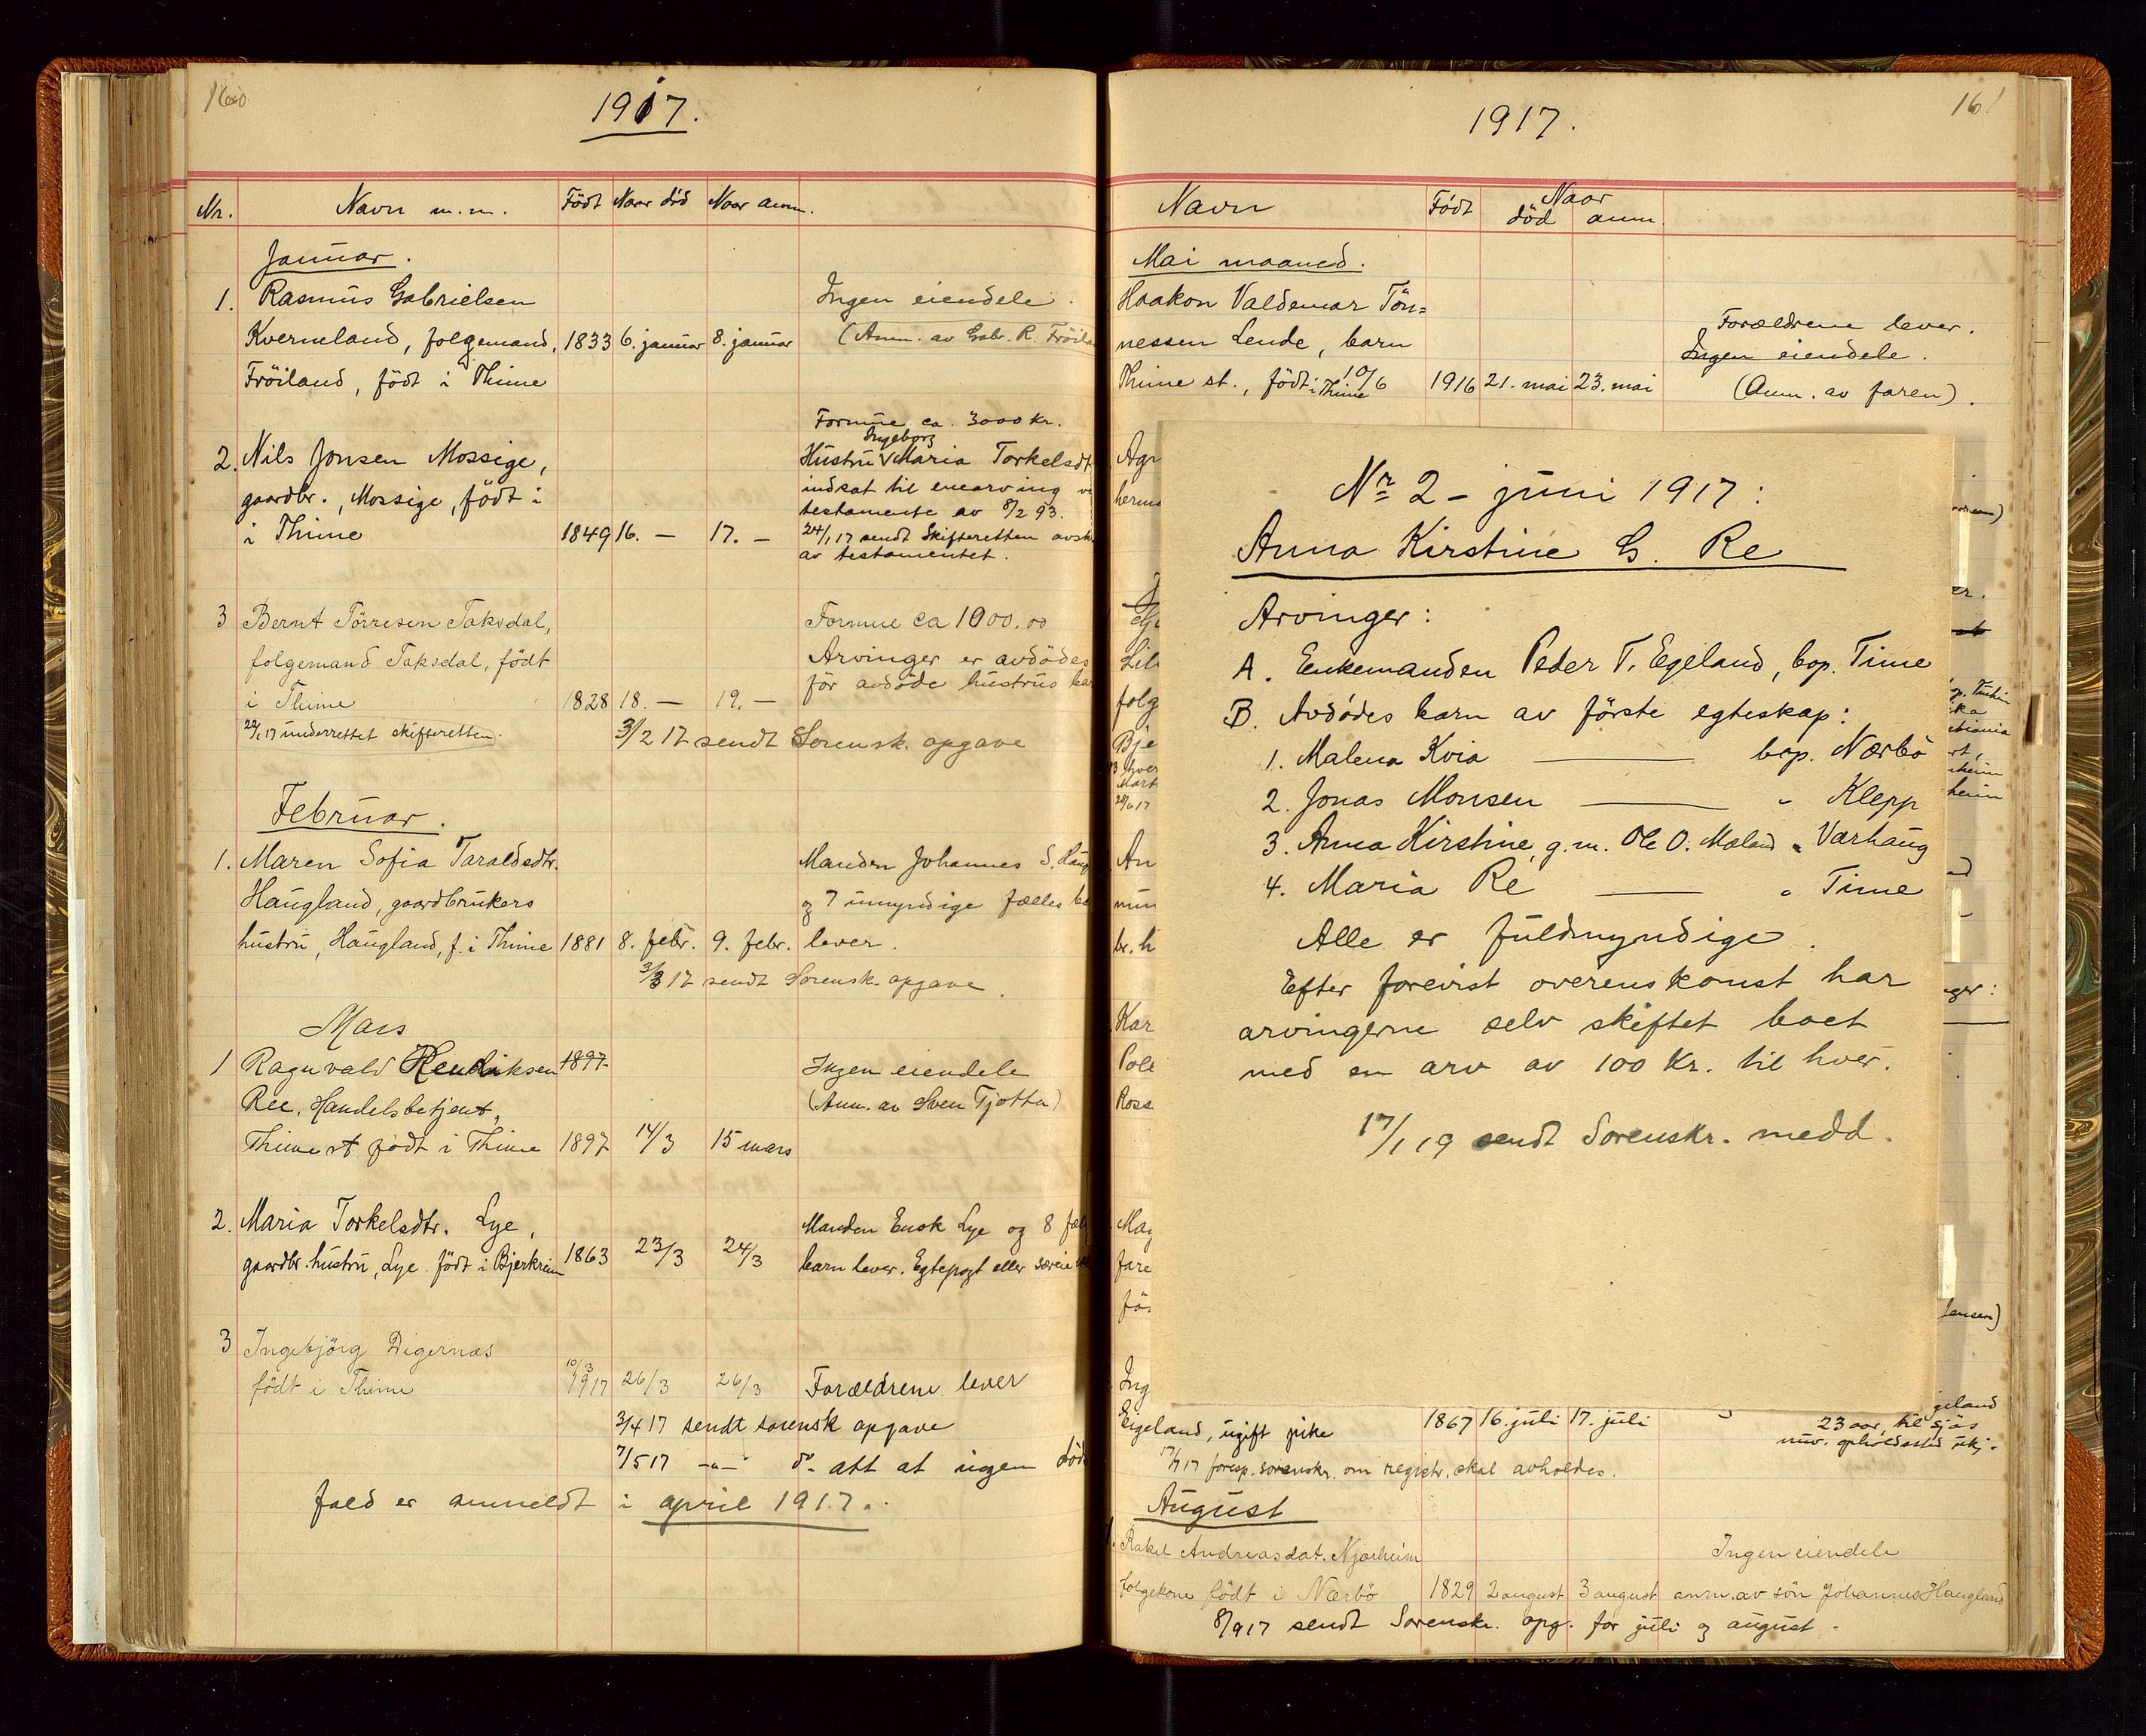 160
1917.
Nr. Navn m.m. Födt Naar död Naar anm.
Januar.
1. Rasmus Gabrielsen Ingen eiendele.
Kverneland, folgemand, 1833 6. januar 8. januar (Anm. av Gabr. R. Fröilan
Fröiland, födt i Thime
Formue ca. 3000 kr.
Ingeborg
2. Nils Jonsen Mossige, Hustru Maria Torkelsdt
gaardbr., Mossige, födt i indsat til enearving
testamente av 8/2 93.
i Thime 1849 16. — 17. — 24/1 17 sendt Skifteretten avsk
av testamentet.
3 Bernt Törresen Taksdal, Formue ca 1000.00
folgemand Taksdal, födt Arvinger er avdödes
för avdöde hustrus
i Thime 1828 18. — 19. —
22/1 17 underrettet skifteretten. 3/2 17 sendt Sorensk. opgave
Februar.
1. Maren Sofia Taraldsdtr. Manden Johannes S. Haug
Haugland, gaardbrukers og 7 umyndige fælles
hustru, Haugland, f. i Thime 1881 8. febr. 9. febr. lever.
3/3 17 sendt Sorensk. opgave.
Mars
1 Ragnvald Hendriksen 1897 Ingen eiendele
Ree, Handelsbetjent, (Anm. av Sven Tjotta)
Thime st födt i Thime 1897 14/3 15 mars
2. Maria Torkelsdtr. Lye, Manden Enok Lye og 8 fæl
gaardbr. hustru, Lye. födt i Bjerkreim 1863 23/3 24/3 barn lever. Egtepagt eller særeie
3 Ingebjörg Digernæs
födt i Thime 10/3 1917 26/3 26/3 Forældrene lever
3/4 17 sendt sorensk opgave
7/5 17 —"— do. att at ingen död
fald er anmeldt i april 1917.
161
1917.
Navn Födt Naar
död anm.
Mai maaned.
Haakon Valdemar Tön=
nessen Lende, barn Forældrene lever.
Ingen eiendele.
Thime st., födt i Thime 10/6 1916 21. mai 23. mai (Anm. av faren).
Nr. 2 - juni 1917:
Anna Kirstine G. Re
Arvinger:
A. Enkemanden Peder T. Egeland, bop. Time
B. Avdödes barn av förste egteskap:
1. Malena Kvia — bop. Nærbö
2. Jonas Monsen — " Klepp
3. Anna Kirstine, g.m. Ole O. Mæland " Varhaug
4. Maria Re — " Time
Alle er fuldmyndige.
Efter forevist overenskomst har
arvingerne selv skiftet boet
med en arv av 100 Kr. til hver.
17/1 19 sendt Sorenskr. medd.
geland
Eigeland, ugift pike 1867 16. juli 17. juli 23 aar, til sjös
nuv. opholdssted ukj.
17/7 17 foresp. sorenskr. om registr. skal avholdes.
August
1. Rakel Andreasdat. Njærheim Ingen eiendele
folgekone födt i Nærbö 1829 2 august 3 august anm. av sön Johannes Haugland
8/9 17 sendt Sorenskr. opg. for juli og august.